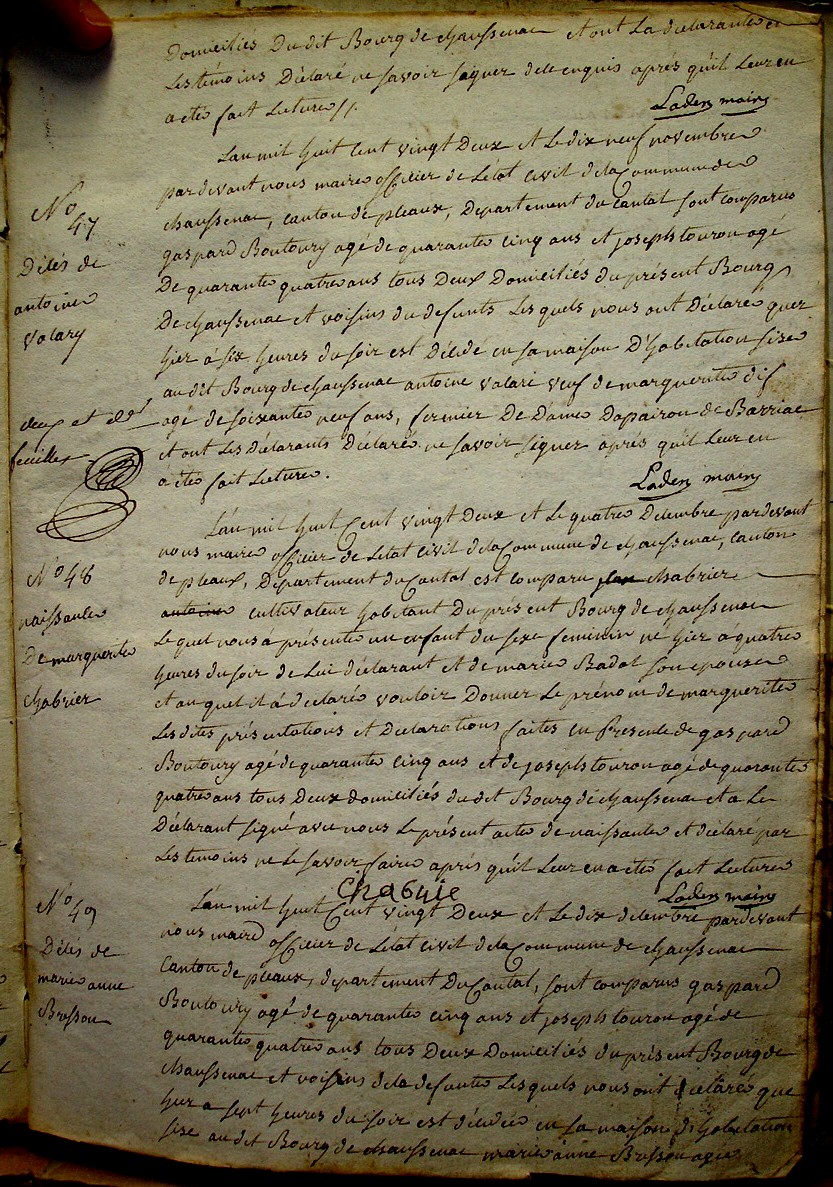 Domiciliés Du dit Bourg de chaussenac et ont La declarante et
Les témoins Déclaré ne savoir signer de ce enquis aprés quil Leur en
a eté fait Lecture //.
Laden maire
N° 47
Décés de
antoine
Valary
L'an mil huit Cent vingt Deux et Le dix neuf novembre
pardevant nous maire officier de L'état civil de la Commune de
chaussenac, canton de pleaux, Departement du Cantal sont comparus
gaspard Boutoury agé de quarante cinq ans et joseph touron agé
De quarante quatre ans tous Deux Domiciliés du présent Bourg
De chaussenac et voisins du defunts Les quels nous ont Déclaré que
hier a six heures du soir est Décédé en sa maison D'habitation sise
au dit Bourg de chaussenac antoine valari veuf de marguerite dif
agé de soixante neuf ans, fermier De Dame Dapairou de Barriac
et ont Les Déclarants Déclaré ne savoir signer aprés quil Leur en
a eté fait Lecture.
Laden maire
deux et de
feuillet
N° 48
naissance
De marguerite
chabrier
L'an mil huit Cent vingt Deux et Le quatre Decembre pardevant
nous maire officier de Létat civil de la Commune de chaussenac, canton
de pleaux, Departement du Cantal est comparu jean chabrier
antoine cultivateur habitant Du présent Bourg de chaussenac
Le quel nous a présenté un enfant du sexe feminin né hier a quatre
heures du soir de Lui déclarant et de marie Badal son epouse
et au quel il a declaré vouloir Donner Le prénom de marguerite
Les dites présentations et Declarations faites en presence de gaspard
Boutoury agé de quarante cinq ans et de joseph touron agé de quarante
quatre ans tous Deux domiciliés du dit Bourg de chaussenac et a Le
Déclarant signé avec nous Le présent acte de naissance et déclaré par
Les temoins ne Le savoir faire aprés quil Leur en a eté fait Lecture
chabrie
Laden maire
N° 49
Décés de
marie anne
Brosson
L'an mil huit Cent vingt Deux et Le dix decembre pardevant
nous maire officier de L'état civil de la Commune de chaussenac
Canton de pleaux, departement Du Cantal, sont comparus gaspard
Boutoury agé de quarante cinq ans et joseph touron agé de
quarante quatre ans tous Deux Domiciliés du présent Bourg de
chaussenac et voisins de la defunte Les quels nous ont déclaré que
hier a sept heures du soir est décédée en sa maison d'habitation
sise au dit Bourg de chaussenac marie anne Brosson agée